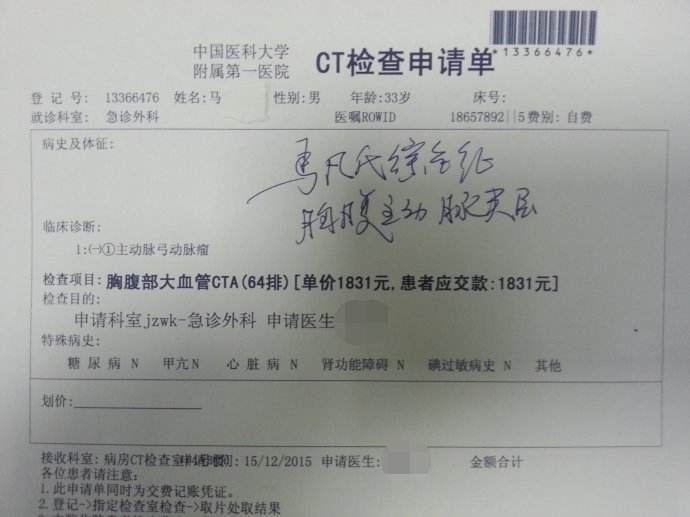 *13366476*
中国医科大学
附属第一医院
CT检查申请单
登 记 号: 13366476 姓名:马 性别:男 年龄:33岁 床号:
就诊科室: 急诊外科 医嘱ROWID 18657892||5 费别: 自费
病史及体征:
马凡氏综合征
胸腹主动脉夹层
临床诊断:
1:㈠①主动脉弓动脉瘤
检查项目: 胸腹部大血管CTA(64排)[单价1831元,患者应交款:1831元]
检查目的:
申请科室jzwk-急诊外科 申请医生
特殊病史:
糖 尿 病 N 甲亢 N 心 脏 病 N 肾功能障碍 N 碘过敏病史 N 其他
划价:
接收科室: 病房CT检查室 15/12/2015 申请医生: 金额合计
各位患者请注意:
1. 此申请单同时为交费记账凭证。
2. 登记->指定检查室检查->取片处取结果